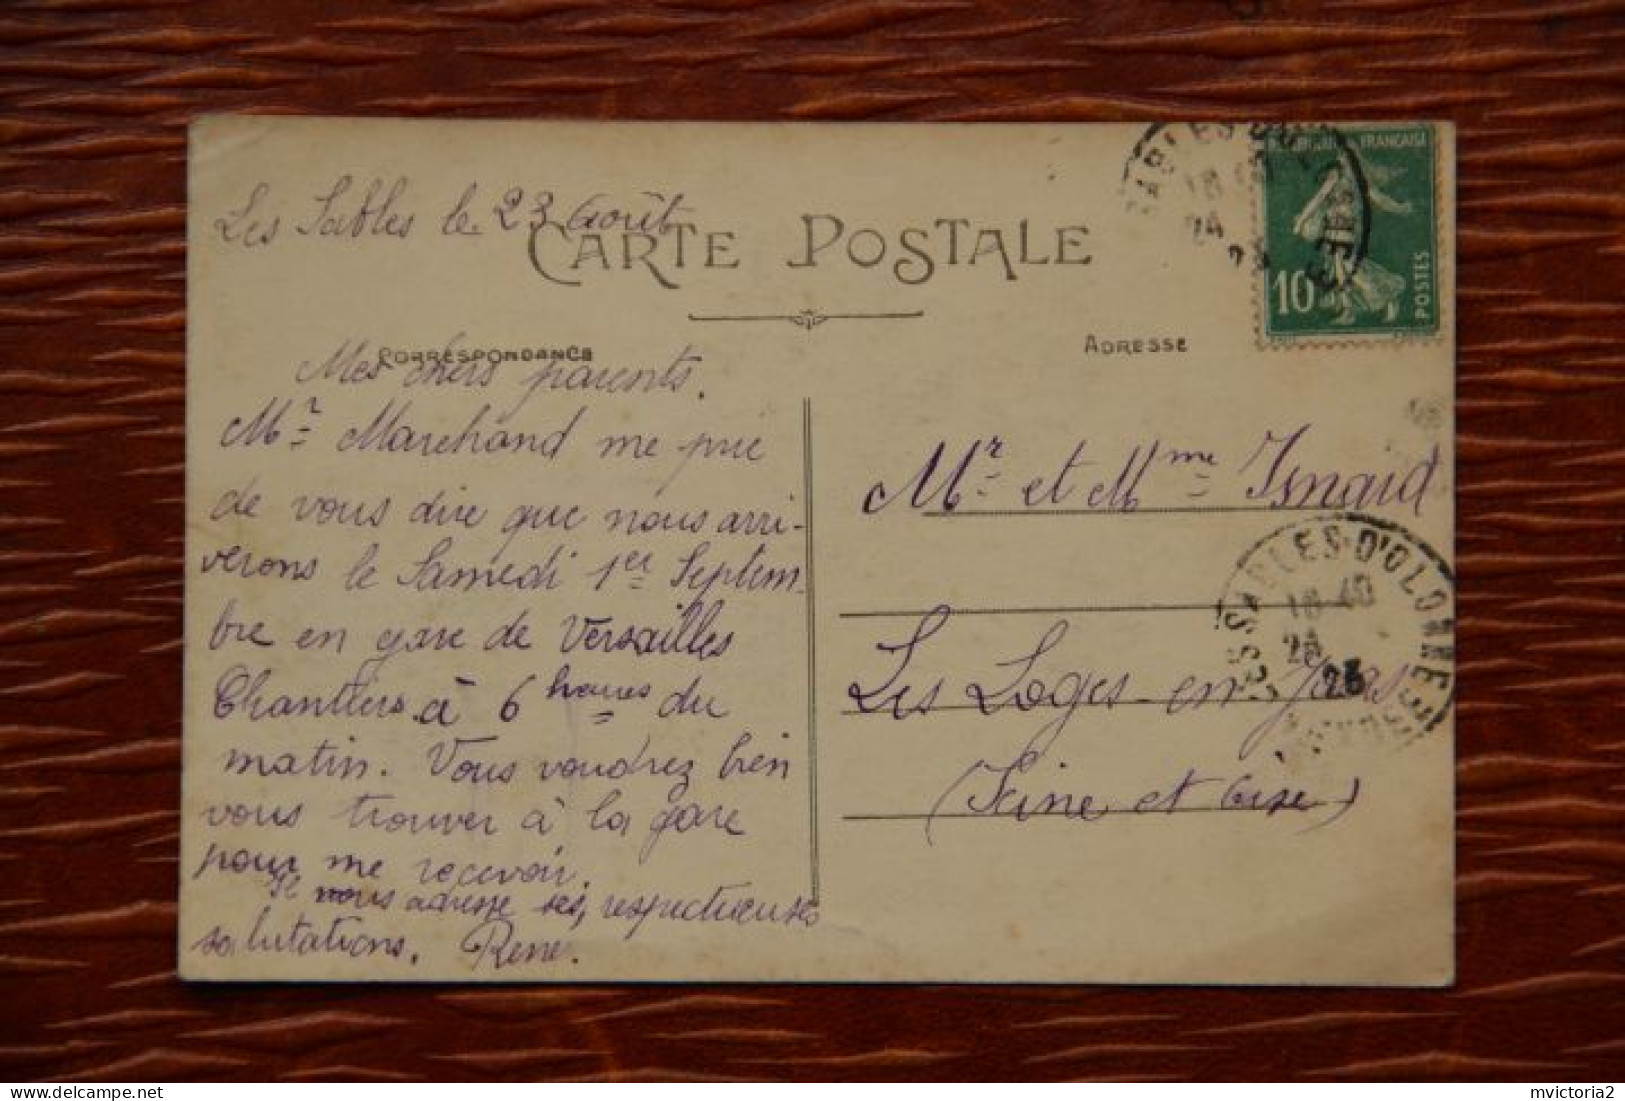 Les Sables le 23 Août
CARTE POSTALE
CORRESPONDANCE
ADRESSE
Mes chers parents.
Mr Marchand me prie
de vous dire que nous arri-
verons le Samedi 1er Septem-
bre en gare de Versailles
Chantiers à 6 heures du
matin. Vous voudrez bien
vous trouver à la gare
pour me recevoir.
Il vous adresse ses respectueuses
salutations. René.
Mr et Mme Isnard
Les Loges-en-Josas
(Seine et Oise)
FRANÇAISE
10
POSTES
SABLES D'OLONNE
24
LES SABLES-D'OLONNE
18 40
24
23
VENDEE
mvictoria2